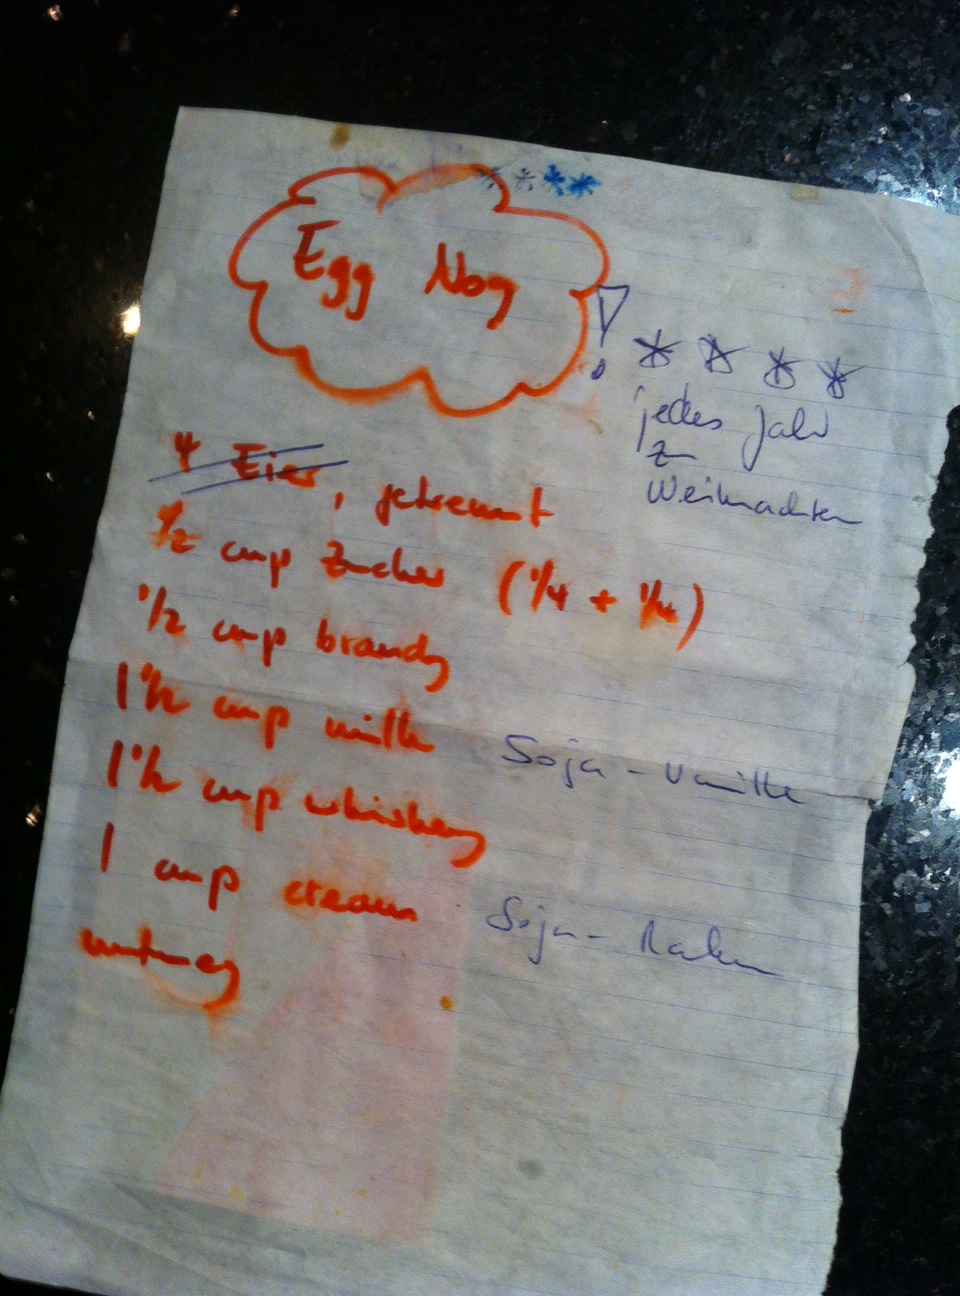 Egg Nog
!
jedes Jahr
zu
Weihnachten
4 Eier, getrennt
1/2 cup Zucker (1/4 + 1/4)
1/2 cup brandy
1 1/2 cup milk Soja-Vanille
1 1/2 cup whiskey
1 cup cream Soja-Rahm
nutmeg